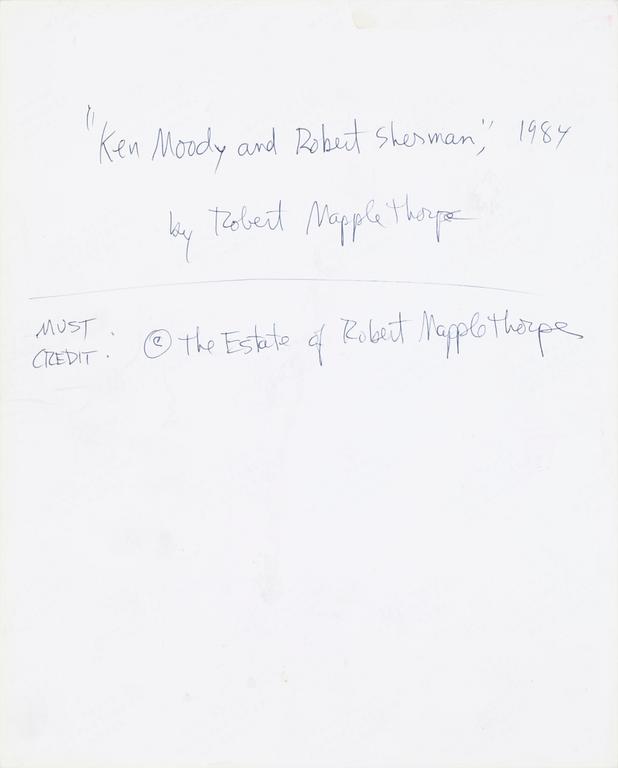 "Ken Moody and Robert Sherman," 1984
by Robert Mapplethorpe
MUST CREDIT: © the Estate of Robert Mapplethorpe